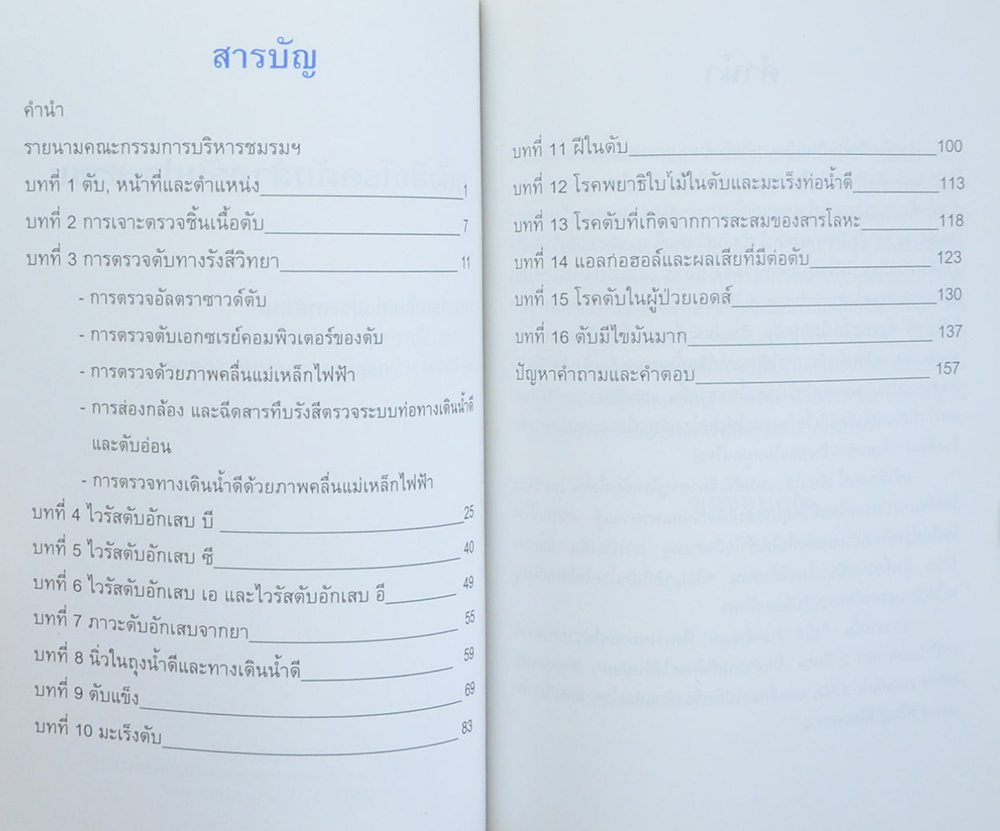 สารบัญ
คำนำ
รายนามคณะกรรมการบริหารชมรมฯ
บทที่ 1 ตับ, หน้าที่และตำแหน่ง 1
บทที่ 2 การเจาะตรวจชิ้นเนื้อตับ 7
บทที่ 3 การตรวจตับทางรังสีวิทยา 11
- การตรวจอัลตราซาวด์ตับ
- การตรวจตับเอกซเรย์คอมพิวเตอร์ของตับ
- การตรวจด้วยภาพคลื่นแม่เหล็กไฟฟ้า
- การส่องกล้อง และฉีดสารทึบรังสีตรวจระบบท่อทางเดินน้ำดี
และตับอ่อน
- การตรวจทางเดินน้ำดีด้วยภาพคลื่นแม่เหล็กไฟฟ้า
บทที่ 4 ไวรัสตับอักเสบ บี 25
บทที่ 5 ไวรัสตับอักเสบ ซี 40
บทที่ 6 ไวรัสตับอักเสบ เอ และไวรัสตับอักเสบ อี 49
บทที่ 7 ภาวะตับอักเสบจากยา 55
บทที่ 8 นิ่วในถุงน้ำดีและทางเดินน้ำดี 59
บทที่ 9 ตับแข็ง 69
บทที่ 10 มะเร็งตับ 83
บทที่ 11 ฝีในตับ 100
บทที่ 12 โรคพยาธิใบไม้ในตับและมะเร็งท่อน้ำดี 113
บทที่ 13 โรคตับที่เกิดจากการสะสมของสารโลหะ 118
บทที่ 14 แอลก่อฮอล์และผลเสียที่มีต่อตับ 123
บทที่ 15 โรคตับในผู้ป่วยเอดส์ 130
บทที่ 16 ตับมีไขมันมาก 137
ปัญหาคำถามและคำตอบ 157